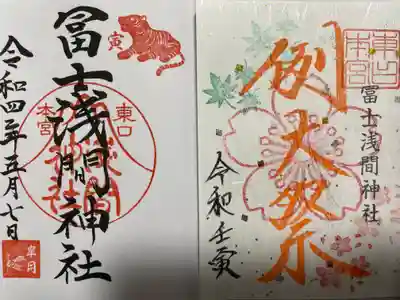 寅
冨士浅間神社
東口
本宮
冨士浅間神社
令和四年五月七日
皐月
東口本宮
冨士浅間神社
例大祭
令和壬寅